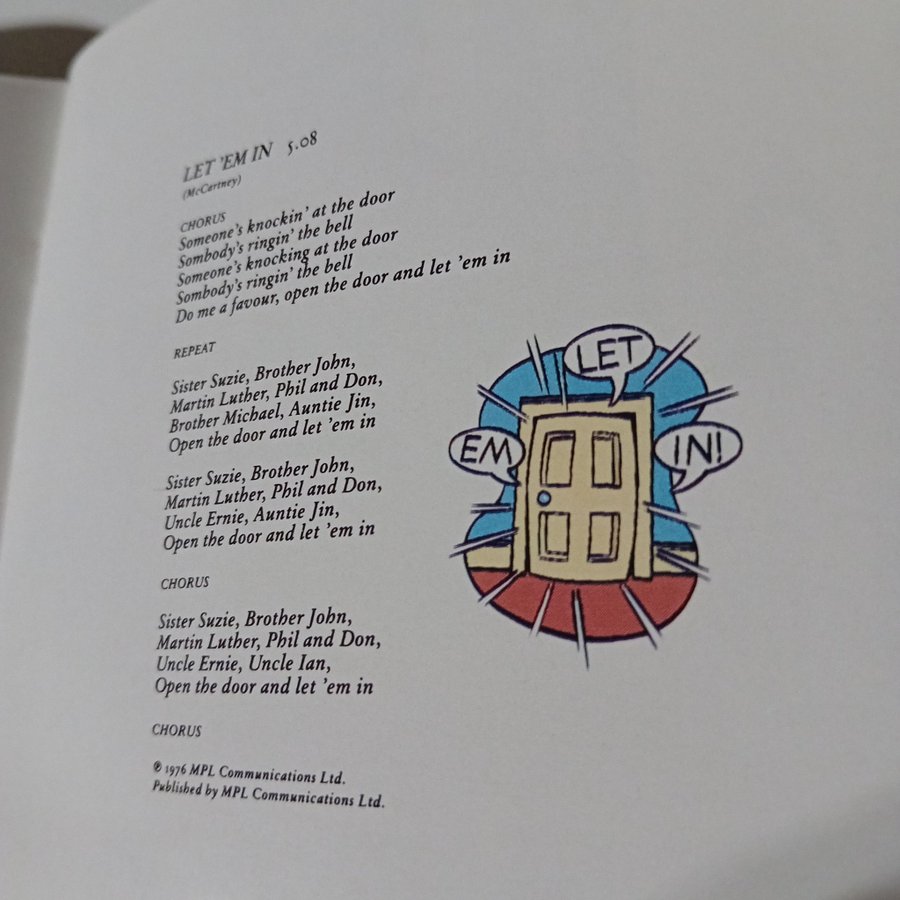 LET 'EM IN 5.08
(McCartney)
CHORUS
Someone's knockin' at the door
Sombody's ringin' the bell
Someone's knocking at the door
Sombody's ringin' the bell
Do me a favour, open the door and let 'em in
REPEAT
Sister Suzie, Brother John,
Martin Luther, Phil and Don,
Brother Michael, Auntie Jin,
Open the door and let 'em in
Sister Suzie, Brother John,
Martin Luther, Phil and Don,
Uncle Ernie, Auntie Jin,
Open the door and let 'em in
CHORUS
Sister Suzie, Brother John,
Martin Luther, Phil and Don,
Uncle Ernie, Uncle Ian,
Open the door and let 'em in
CHORUS
℗ 1976 MPL Communications Ltd.
Published by MPL Communications Ltd.
LET
EM
IN!